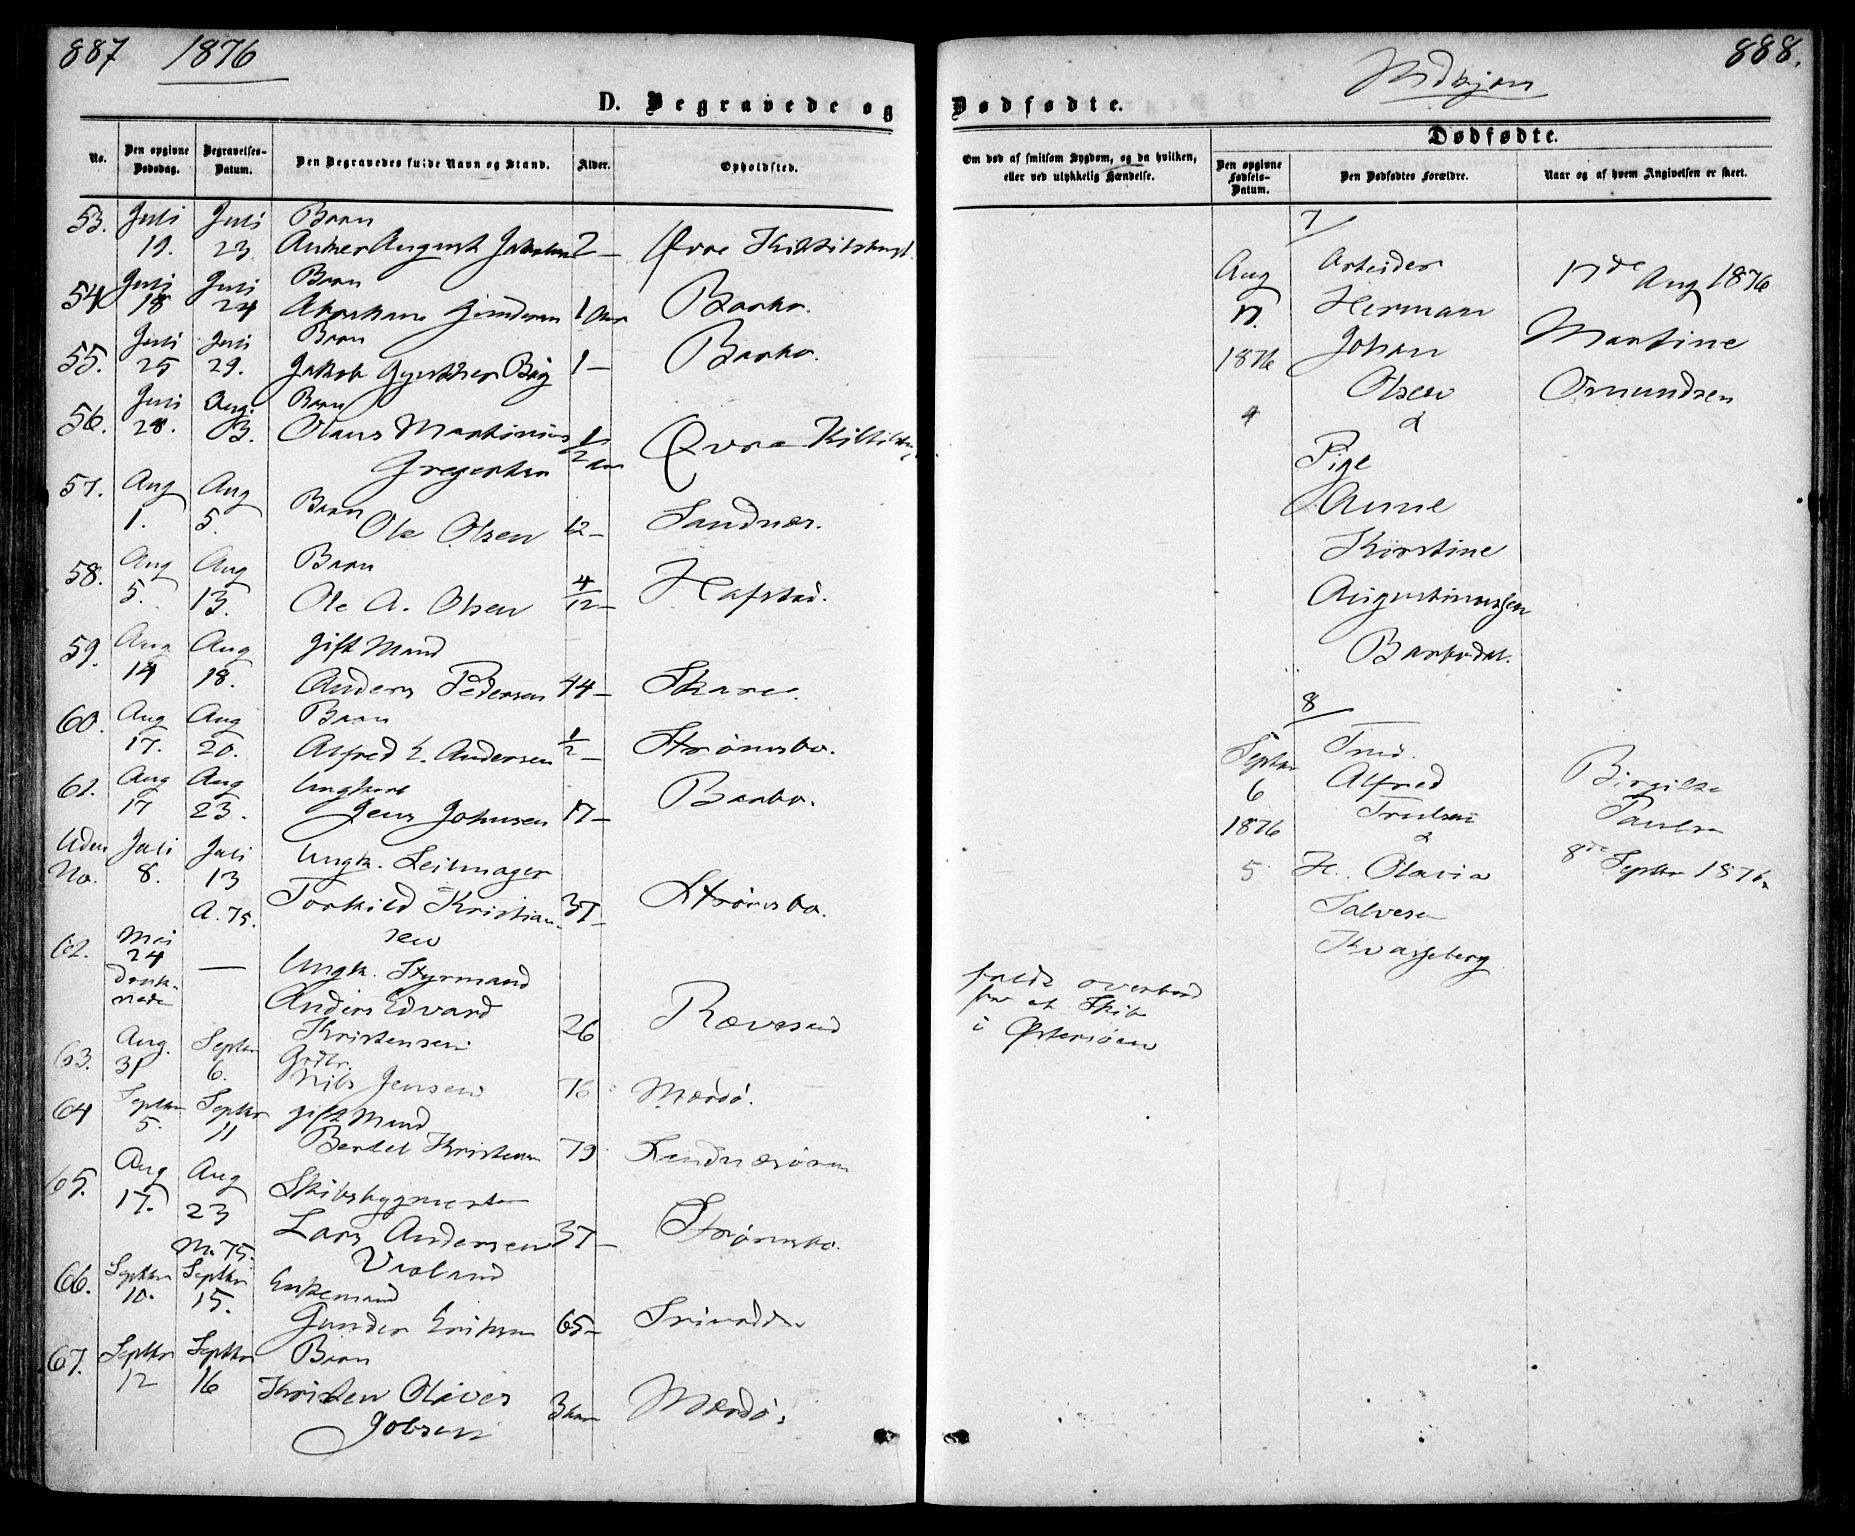 887 1876
D. Begravede og
No.
Den opgivne Dødsdag.
Begravelses-Datum.
Den Begravedes fulde Navn og Stand.
Alder.
Opholdsted.
53. Juli Juli Barn
19. 23. August Jakobsen 2 — Øvre
54 Juli Juli Barn
18 24 1 Barbo.
55. Juli Juli Barn
25 29. Jakob 1 — Barbo.
56. Juli Aug. Barn
28. 3. Olaus Martinius 1/2 Øvre
Gregersen
57. Aug Aug Barn
1. 5. Ole Olsen 12 — Sandnæs.
58. Aug Aug Barn
5. 13. Ole A. Olsen 4/12 — Hafstad.
59. Aug Aug gift Mand
14 18. Anders Pedersen 44 — Skare.
60. Aug Aug Barn
17. 20. Alfred E. Andersen 1/2 — Strømsbo.
61. Aug Aug Ungkarl
17 23. Jens Johnsen 17 — Barbo.
Uden Juli Juli Ungk. Seilmager
No. 8. 13
A. 75. Torkild Kristian 37 — Strømsbo.
sen
62. Mai
24 — Ungk. Styrmand
druk-
nede Anders Edvard
Kristensen 26 Rævesand
63. Aug. Septbr Grdbr.
31 6. Nils Jensen 76 Mærdø.
64 Septbr Septbr gift Mand
5. 11 Bertel Kristensen 79 Sandnæs
65. Aug Aug Skibsbygmester
17. 23 Lars Andersen 37 — Strømsbo.
M. 75.
Vaaland
66. Septbr Septbr Enkemand
10. 15. Gunder Eriksen 65 —
67. Septbr Septbr Barn
12 16 Kristen Oliver
Jobsen 3 Mærdø.
888.
Dødfødte.
Om død af smitsom Sygdom, og da hvilken,
eller ved ulykkelig Hændelse.
Dødfødte.
Den opgivne Fødsels-Datum.
Den Dødfødtes Forældre.
Naar og af hvem Angivelsen er skeet.
7
Aug Arbeider 17de Aug 1876
17. Herman
1876 Johan Martine
Olsen Omundsen
4 &
Pige
Anne
Kirstine
Barbodal.
8
Septbr
6 Alfred
1876 Trulsen
&
5 H. Olavia 8de Septbr 1876.
Salvesen
faldt overbord
fra et Skib
i Østersøen